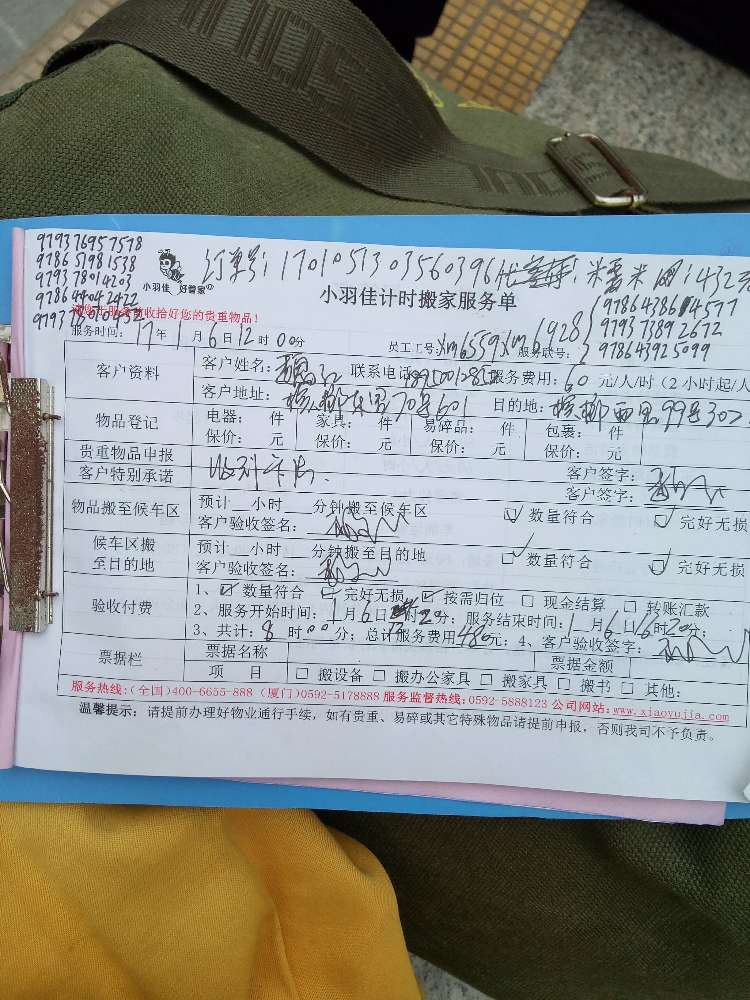 97937695757８
978651981538
97937801420３
978649042422
小羽佳 好管家
订单号:17010513035603961
糯米网:432元
小羽佳计时搬家服务单
收拾好您的贵重物品!
9786438614577
979373892672
978643925099
服务时间:17年1月6日12时00分
员工工号:xm6559 xm6928 服务联号:
客户资料
客户姓名: 联系电话: 服务费用:60元/人/时(2小时起/人
客户地址:槟榔东里70号601 目的地:槟榔西里99号302
物品登记
电器: 件 家具: 件 易碎品: 件 包裹: 件
保价: 元 保价: 元 保价: 元 保价: 元
贵重物品申报 客户签字:
客户特别承诺 客户签字:
物品搬至候车区
预计__小时__分钟搬至候车区
客户验收签名: ☑数量符合 ☑完好无损
候车区搬至目的地
预计__小时__分钟搬至目的地
客户验收签名: ☑数量符合 ☑完好无损
验收付费
1、☑数量符合 ☑完好无损 ☑按需归位 □现金结算 □转账汇款
2、服务开始时间:1月6日12时20分;服务结束时间:1月6日16时20分;
3、共计:8时00分;总计服务费用480元;4、客户验收签字:
票据栏
票据名称 票据金额
项 目 □搬设备 □搬办公家具 □搬家具 □搬书 □其他:
服务热线:(全国)400-6655-888(厦门)0592-5178888 服务监督热线:0592-5888123 公司网站:www.xiaoyujia.com
温馨提示:请提前办理好物业通行手续,如有贵重、易碎或其它特殊物品请提前申报,否则我司不予负责。